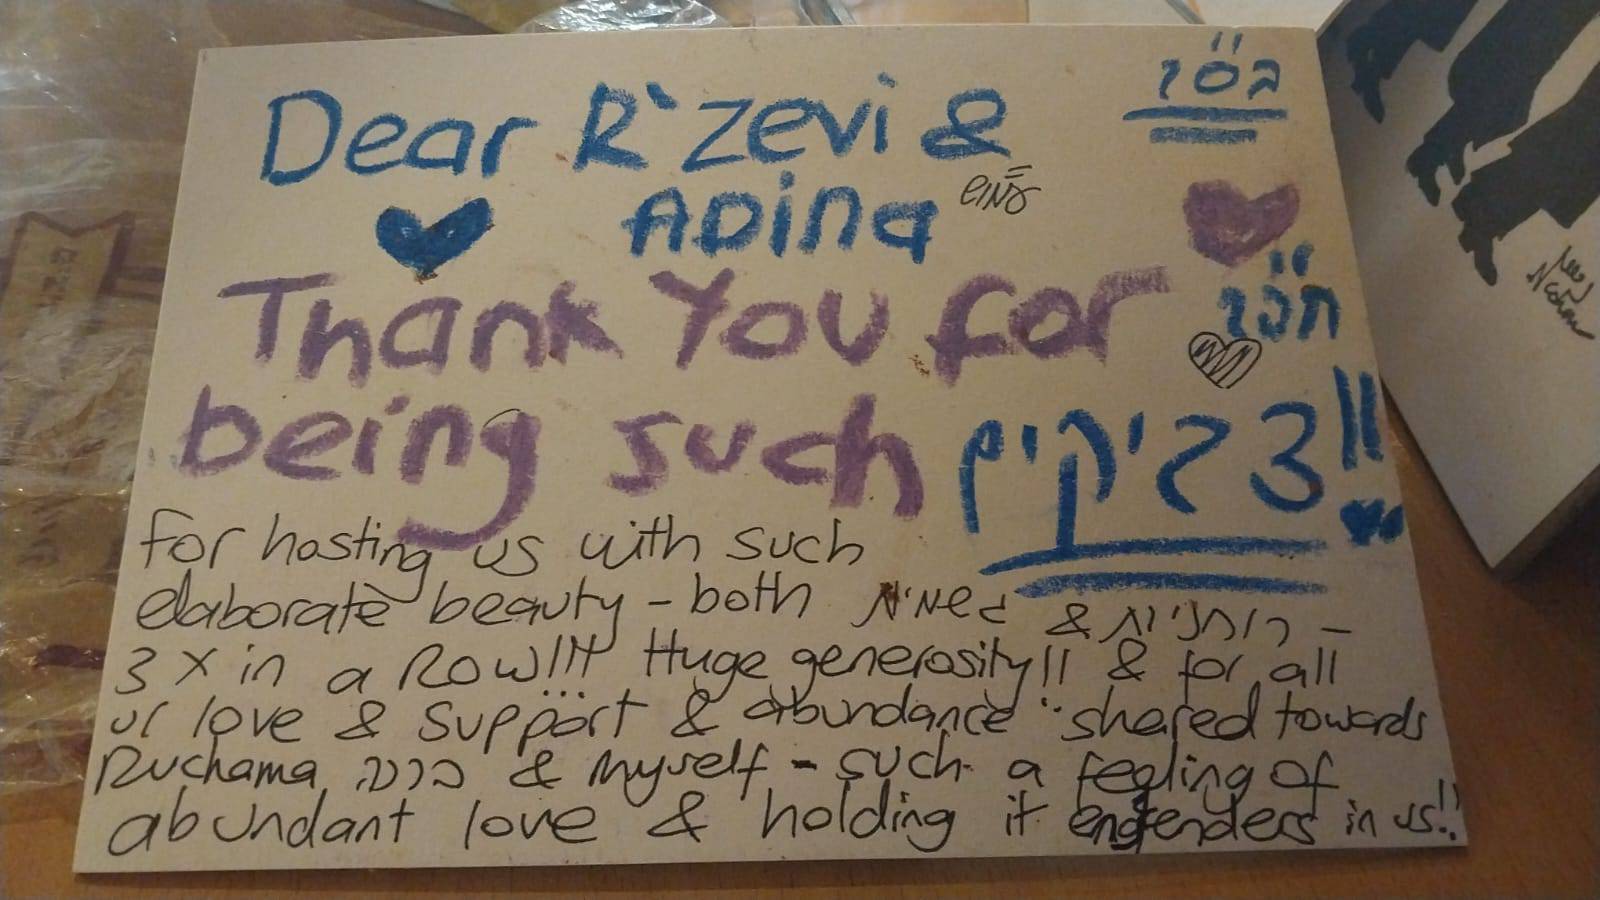 בס"ד
Dear R' Zevi &
Adina
Thank You for
being such צדיקים!!
for hosting us with such
elaborate beauty - both גשמית & רוחנית -
3 x in a ROW!!! Huge generosity!! & for all
ur love & support & abundance shared towards
Ruchama ברכה & myself - such a feeling of
abundant love & holding it engenders in us!!